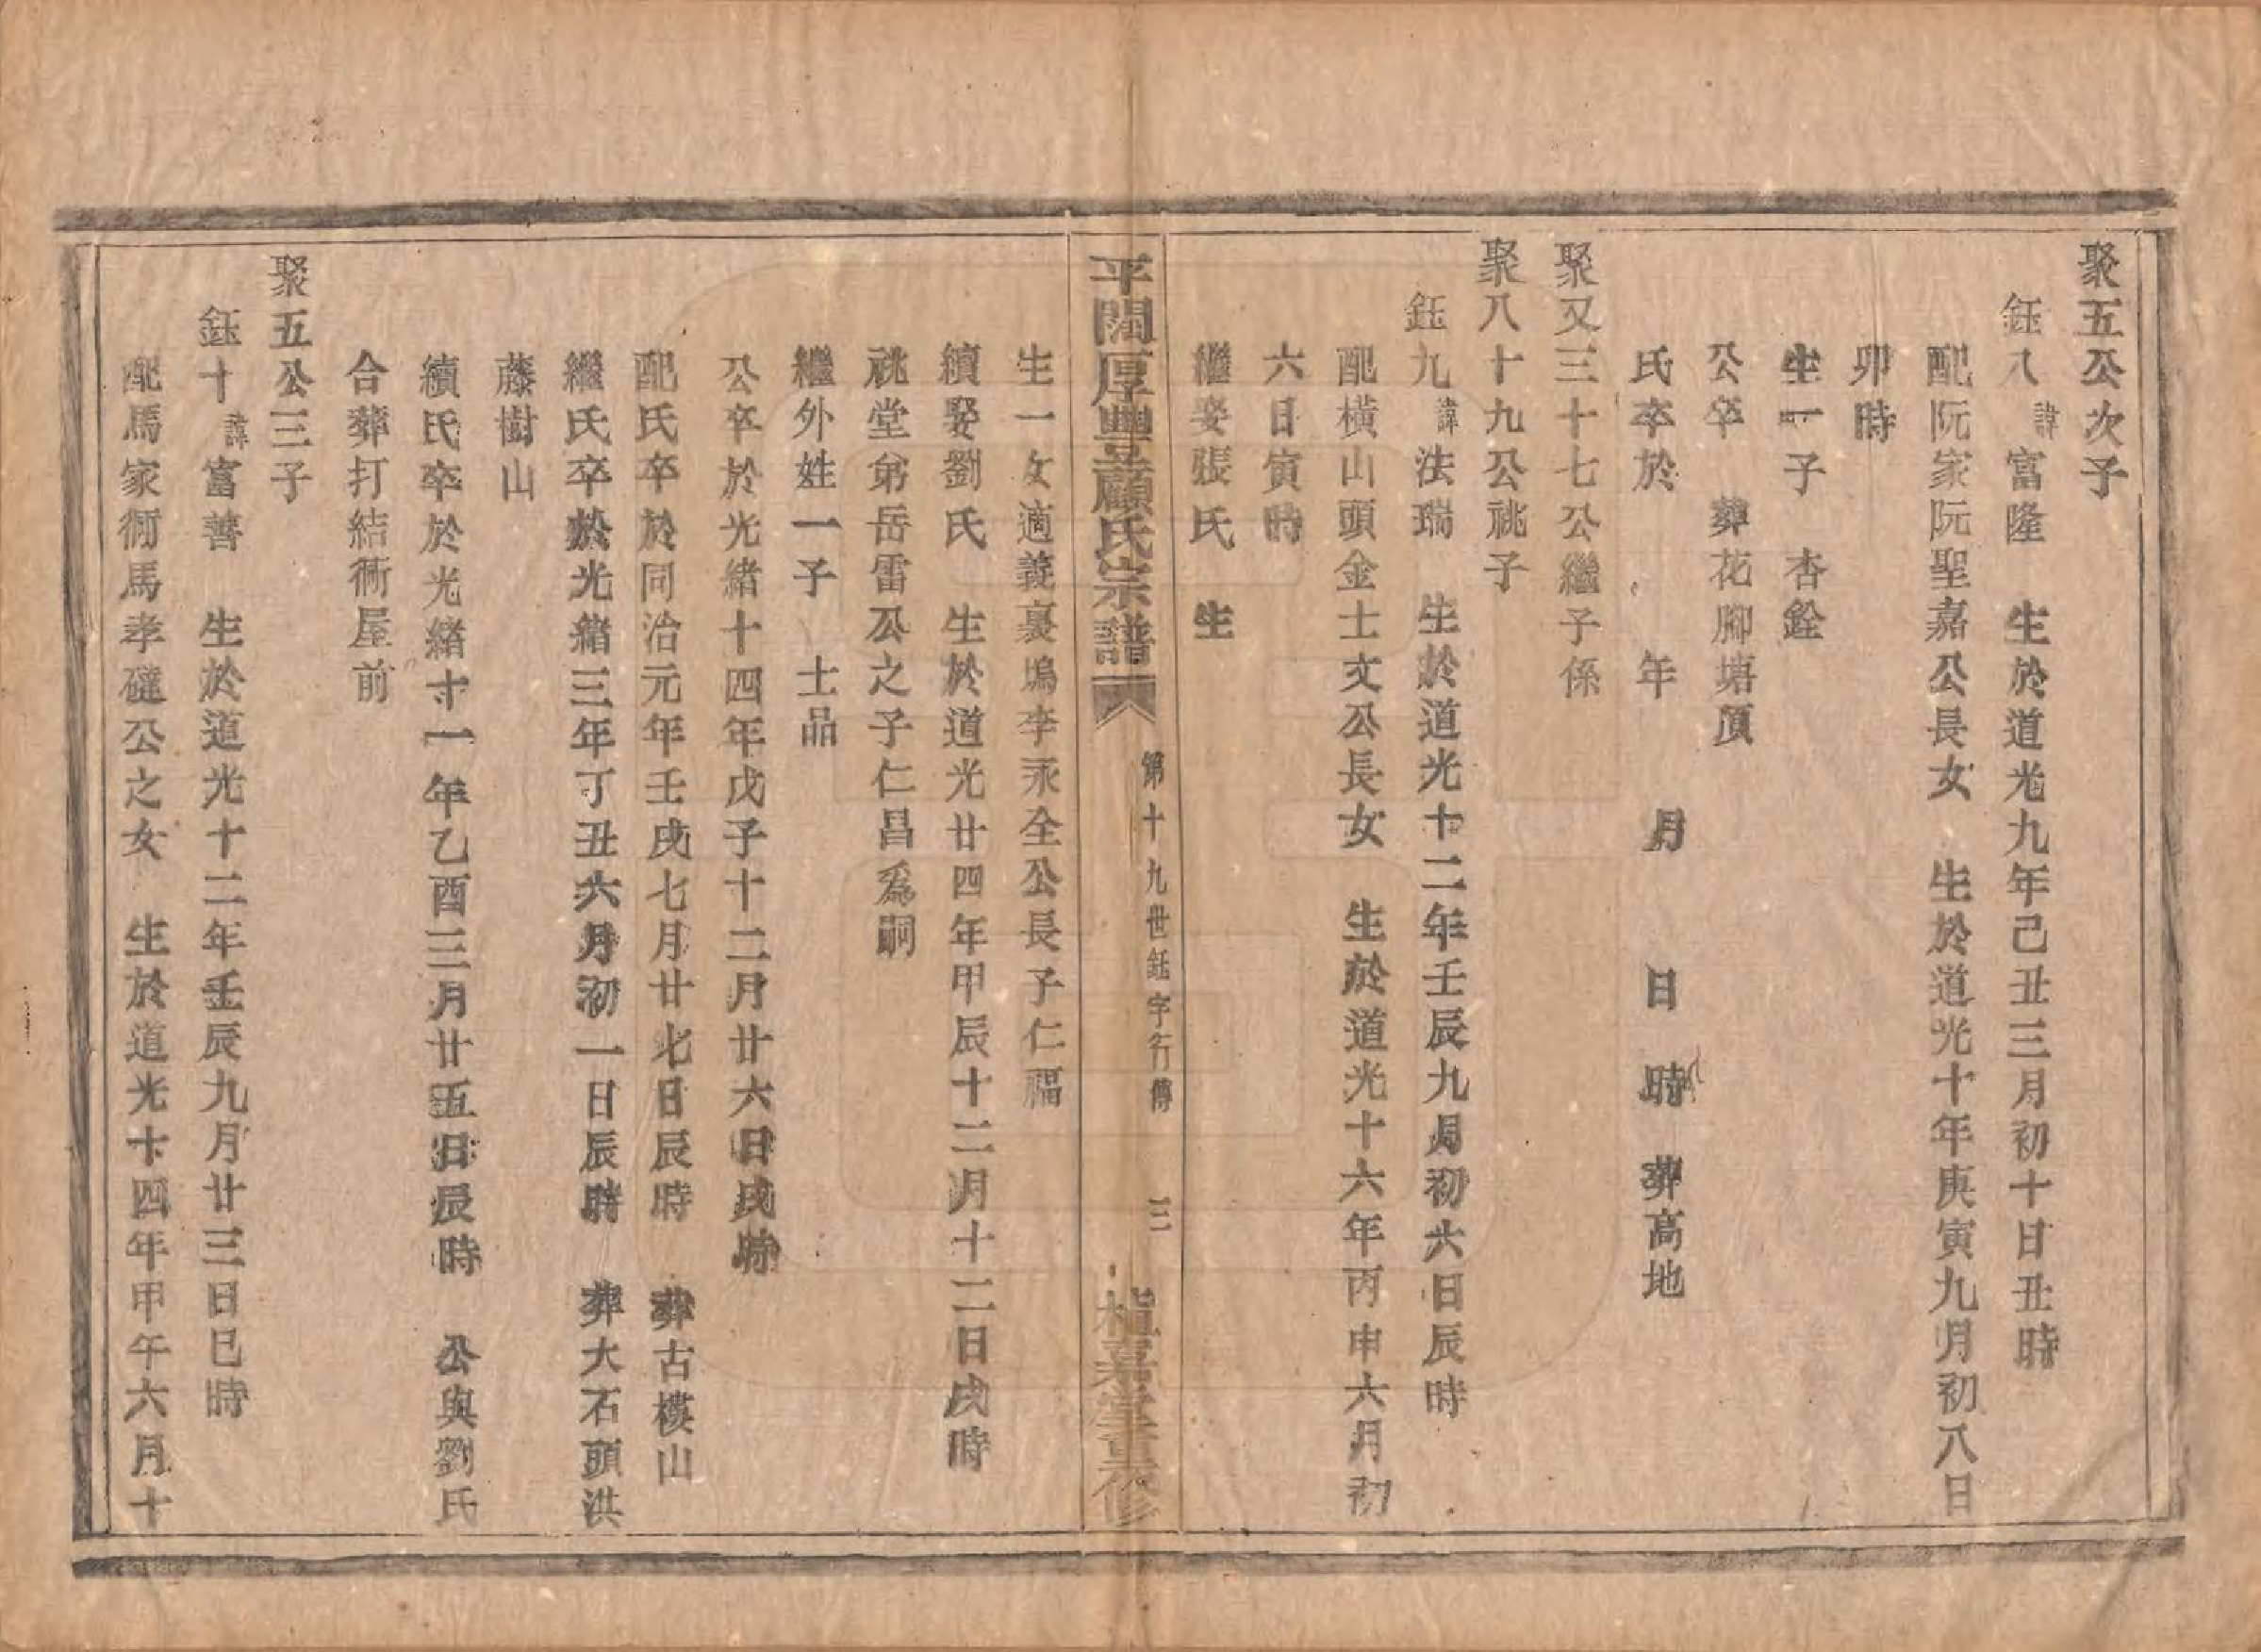 聚五公次子
鈺八諱富隆 生於道光九年己丑三月初十日丑時
配阮家阮聖嘉公長女 生於道光十年庚寅九月初八日
卯時
生一子 杏銓
公卒 葬花腳塘頂
氏卒於 年 月 日 時 葬高地
聚又三十七公繼子係
聚八十九公祧子
鈺九諱法瑞 生於道光十二年壬辰九月初六日辰時
配橫山頭金士文公長女 生於道光十六年丙申六月初
六日寅時
繼娶張氏 生
平闊厚豐顧氏宗譜 第十九世鈺字行傳 三 植嘉堂重修
生一女適義裏塢李永全公長子仁福
續娶劉氏 生於道光廿四年甲辰十二月十二日戌時
祧堂弟岳雷公之子仁昌為嗣
繼外姓一子 士品
公卒於光緒十四年戊子十二月廿六日戌時
配氏卒於同治元年壬戌七月廿七日辰時 葬古樸山
繼氏卒於光緒三年丁丑六月初一日辰時 葬大石頭洪
藤樹山
續氏卒於光緒十一年乙酉三月廿五日辰時 公與劉氏
合葬打結衕屋前
聚五公三子
鈺十諱富善 生於道光十二年壬辰九月廿三日巳時
配馬家衕馬孝礎公之女 生於道光十四年甲午六月十